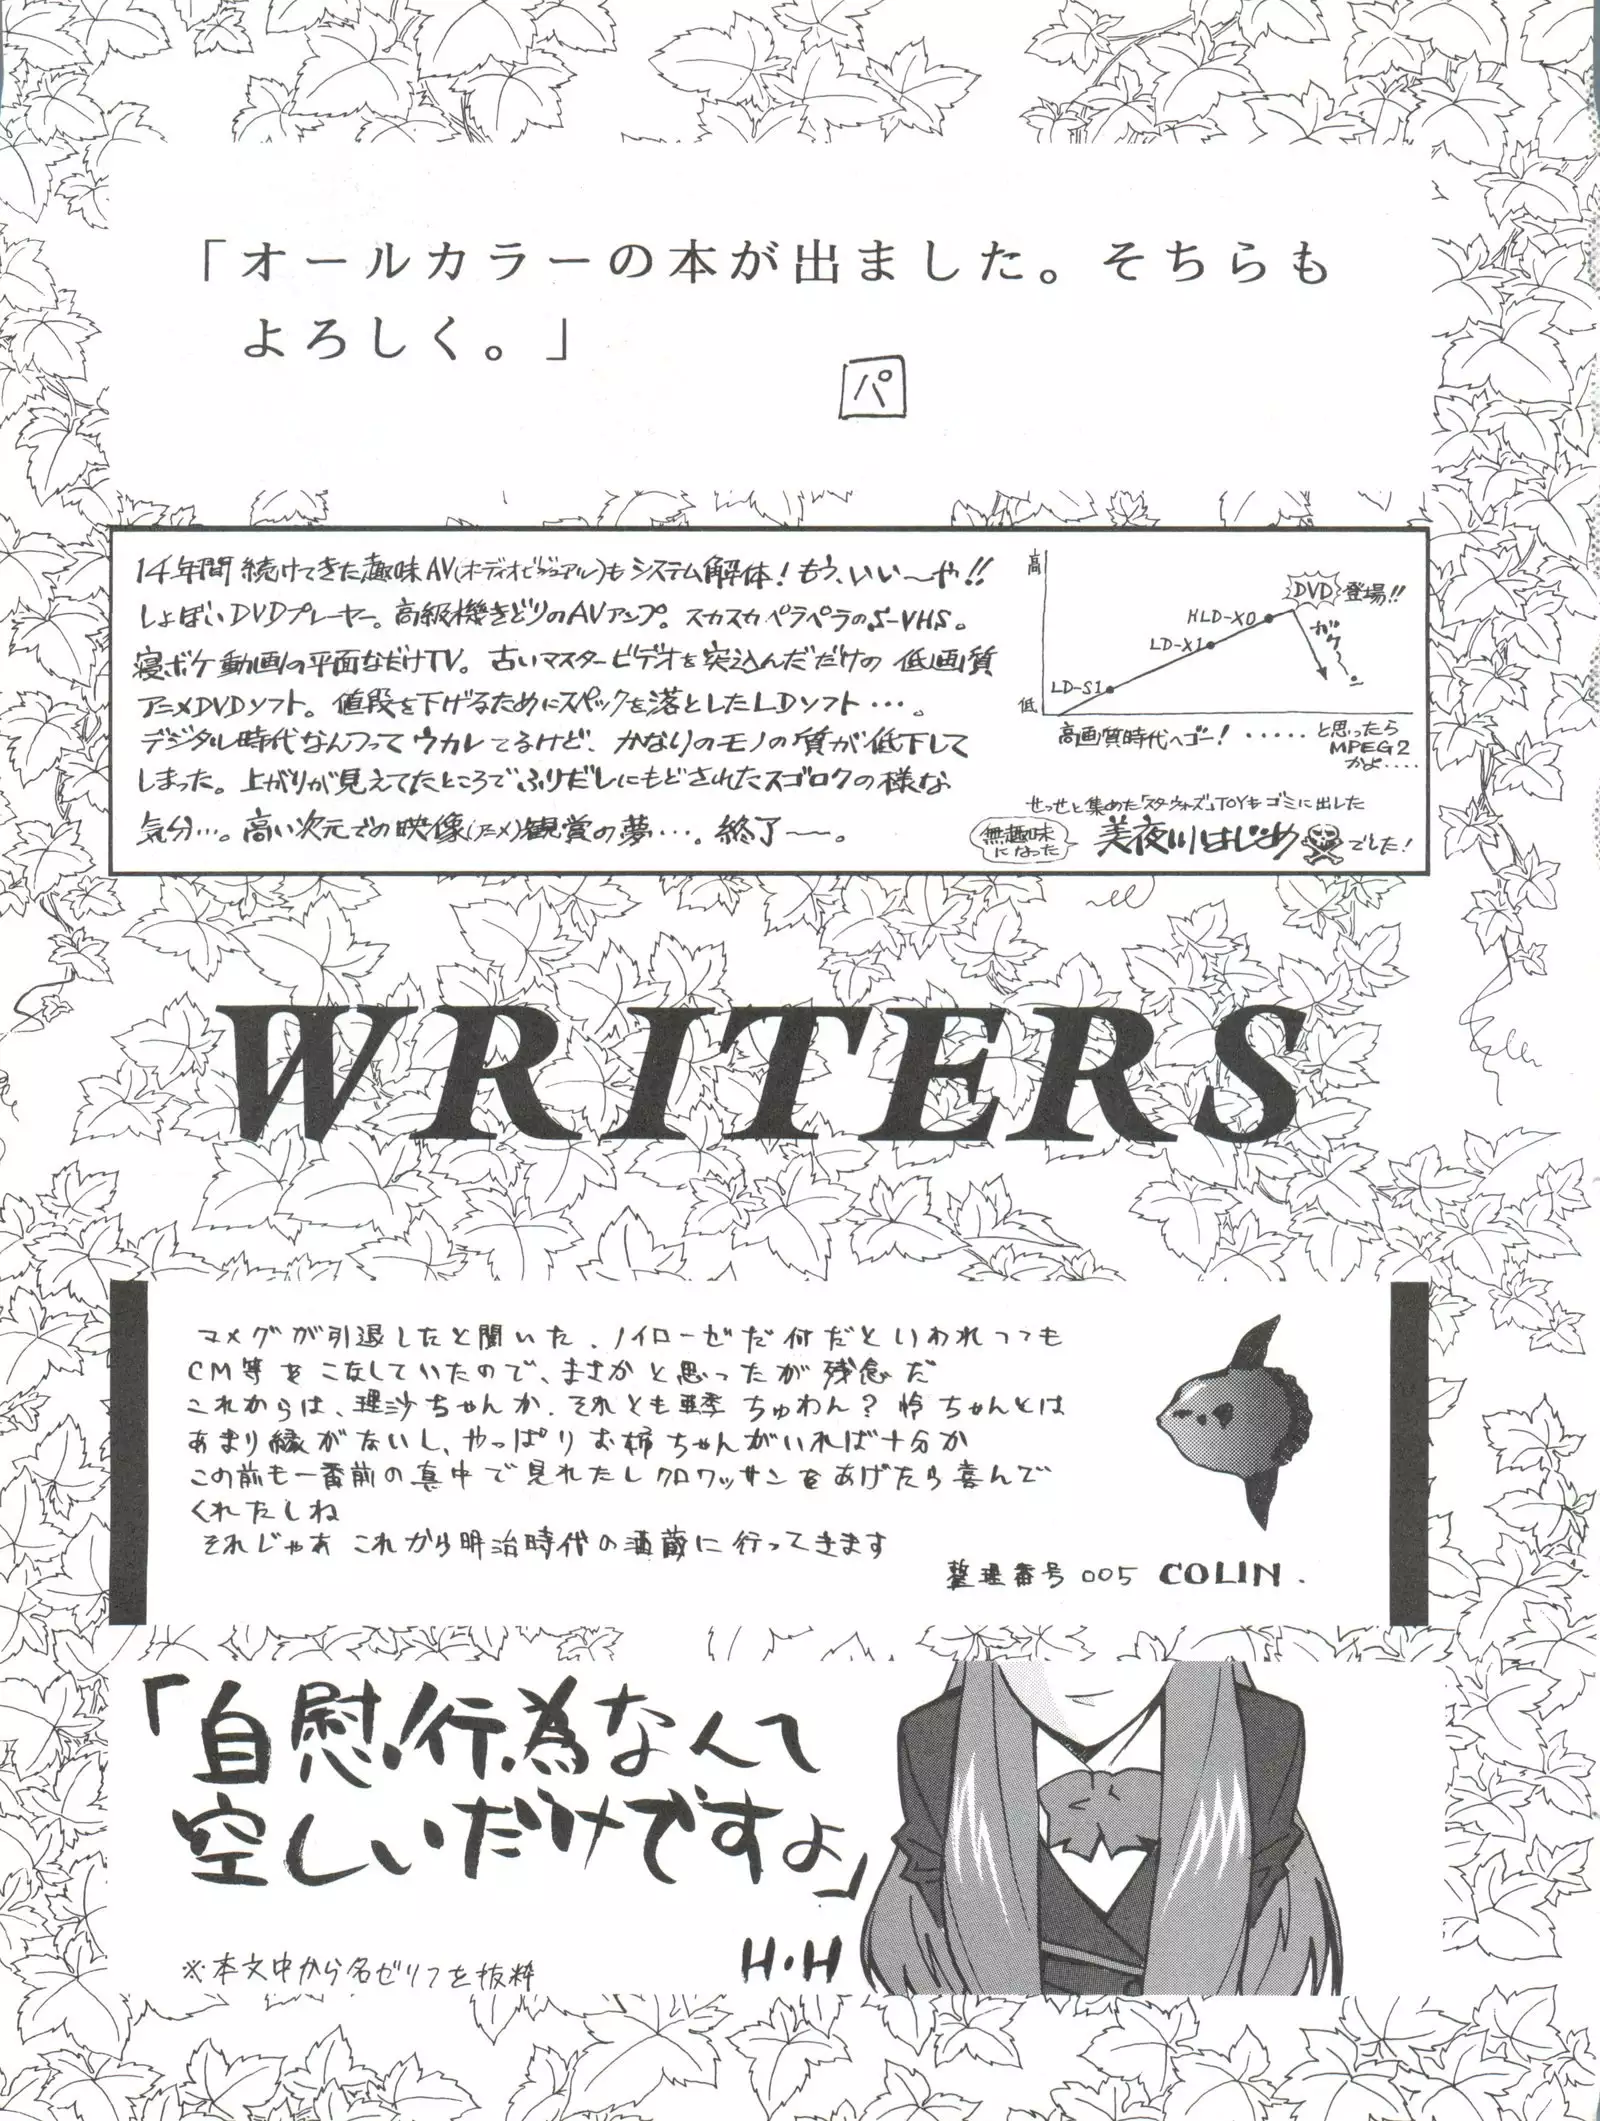 「オールカラーの本が出ました。そちらも
よろしく。」
パ
14年間続けてきた趣味AV(オーディオビジュアル)もシステム解体!もう、いい〜や!!
しょぼいDVDプレーヤー。高級機きどりのAVアンプ。スカスカペラペラのS-VHS。
寝ボケ動画の平面なだけTV。古いマスタービデオを突込んだだけの低画質
アニメDVDソフト。値段を下げるためにスペックを落としたLDソフト・・・。
デジタル時代なんつってウカレてるけど、かなりのモノの質が低下して
しまった。上がりが見えてたところでふりだしにもどされたスゴロクの様な
気分…。高い次元での映像(アニメ)観賞の夢・・・。終了〜〜。
高
低
LD-S1
LD-X1
HLD-X0
DVD登場!!
ガケ〜
高画質時代へゴー!・・・・・と思ったら
MPEG2
かよ・・・・
せっせと集めた「スターウォーズ」TOYもゴミに出した
無趣味
になった
美夜川はじめ でした!
WRITERS
マメグが引退したと聞いた、ノイローゼだ何だといわれつつも
CM等をこなしていたので、まさかと思ったが残念だ
これからは、理沙ちゃんか、それとも亜季ちゅわん?怜ちゃんとは
あまり縁がないし、やっぱりお姉ちゃんがいれば十分か
この前も一番前の真中で見れたしクロワッサンをあげたら喜んで
くれたしね
それじゃあ これから明治時代の酒蔵に行ってきます
整理番号 005 COLIN.
「自慰行為なんて
空しいだけですよ」
H・H
※本文中から名ゼリフを抜粋